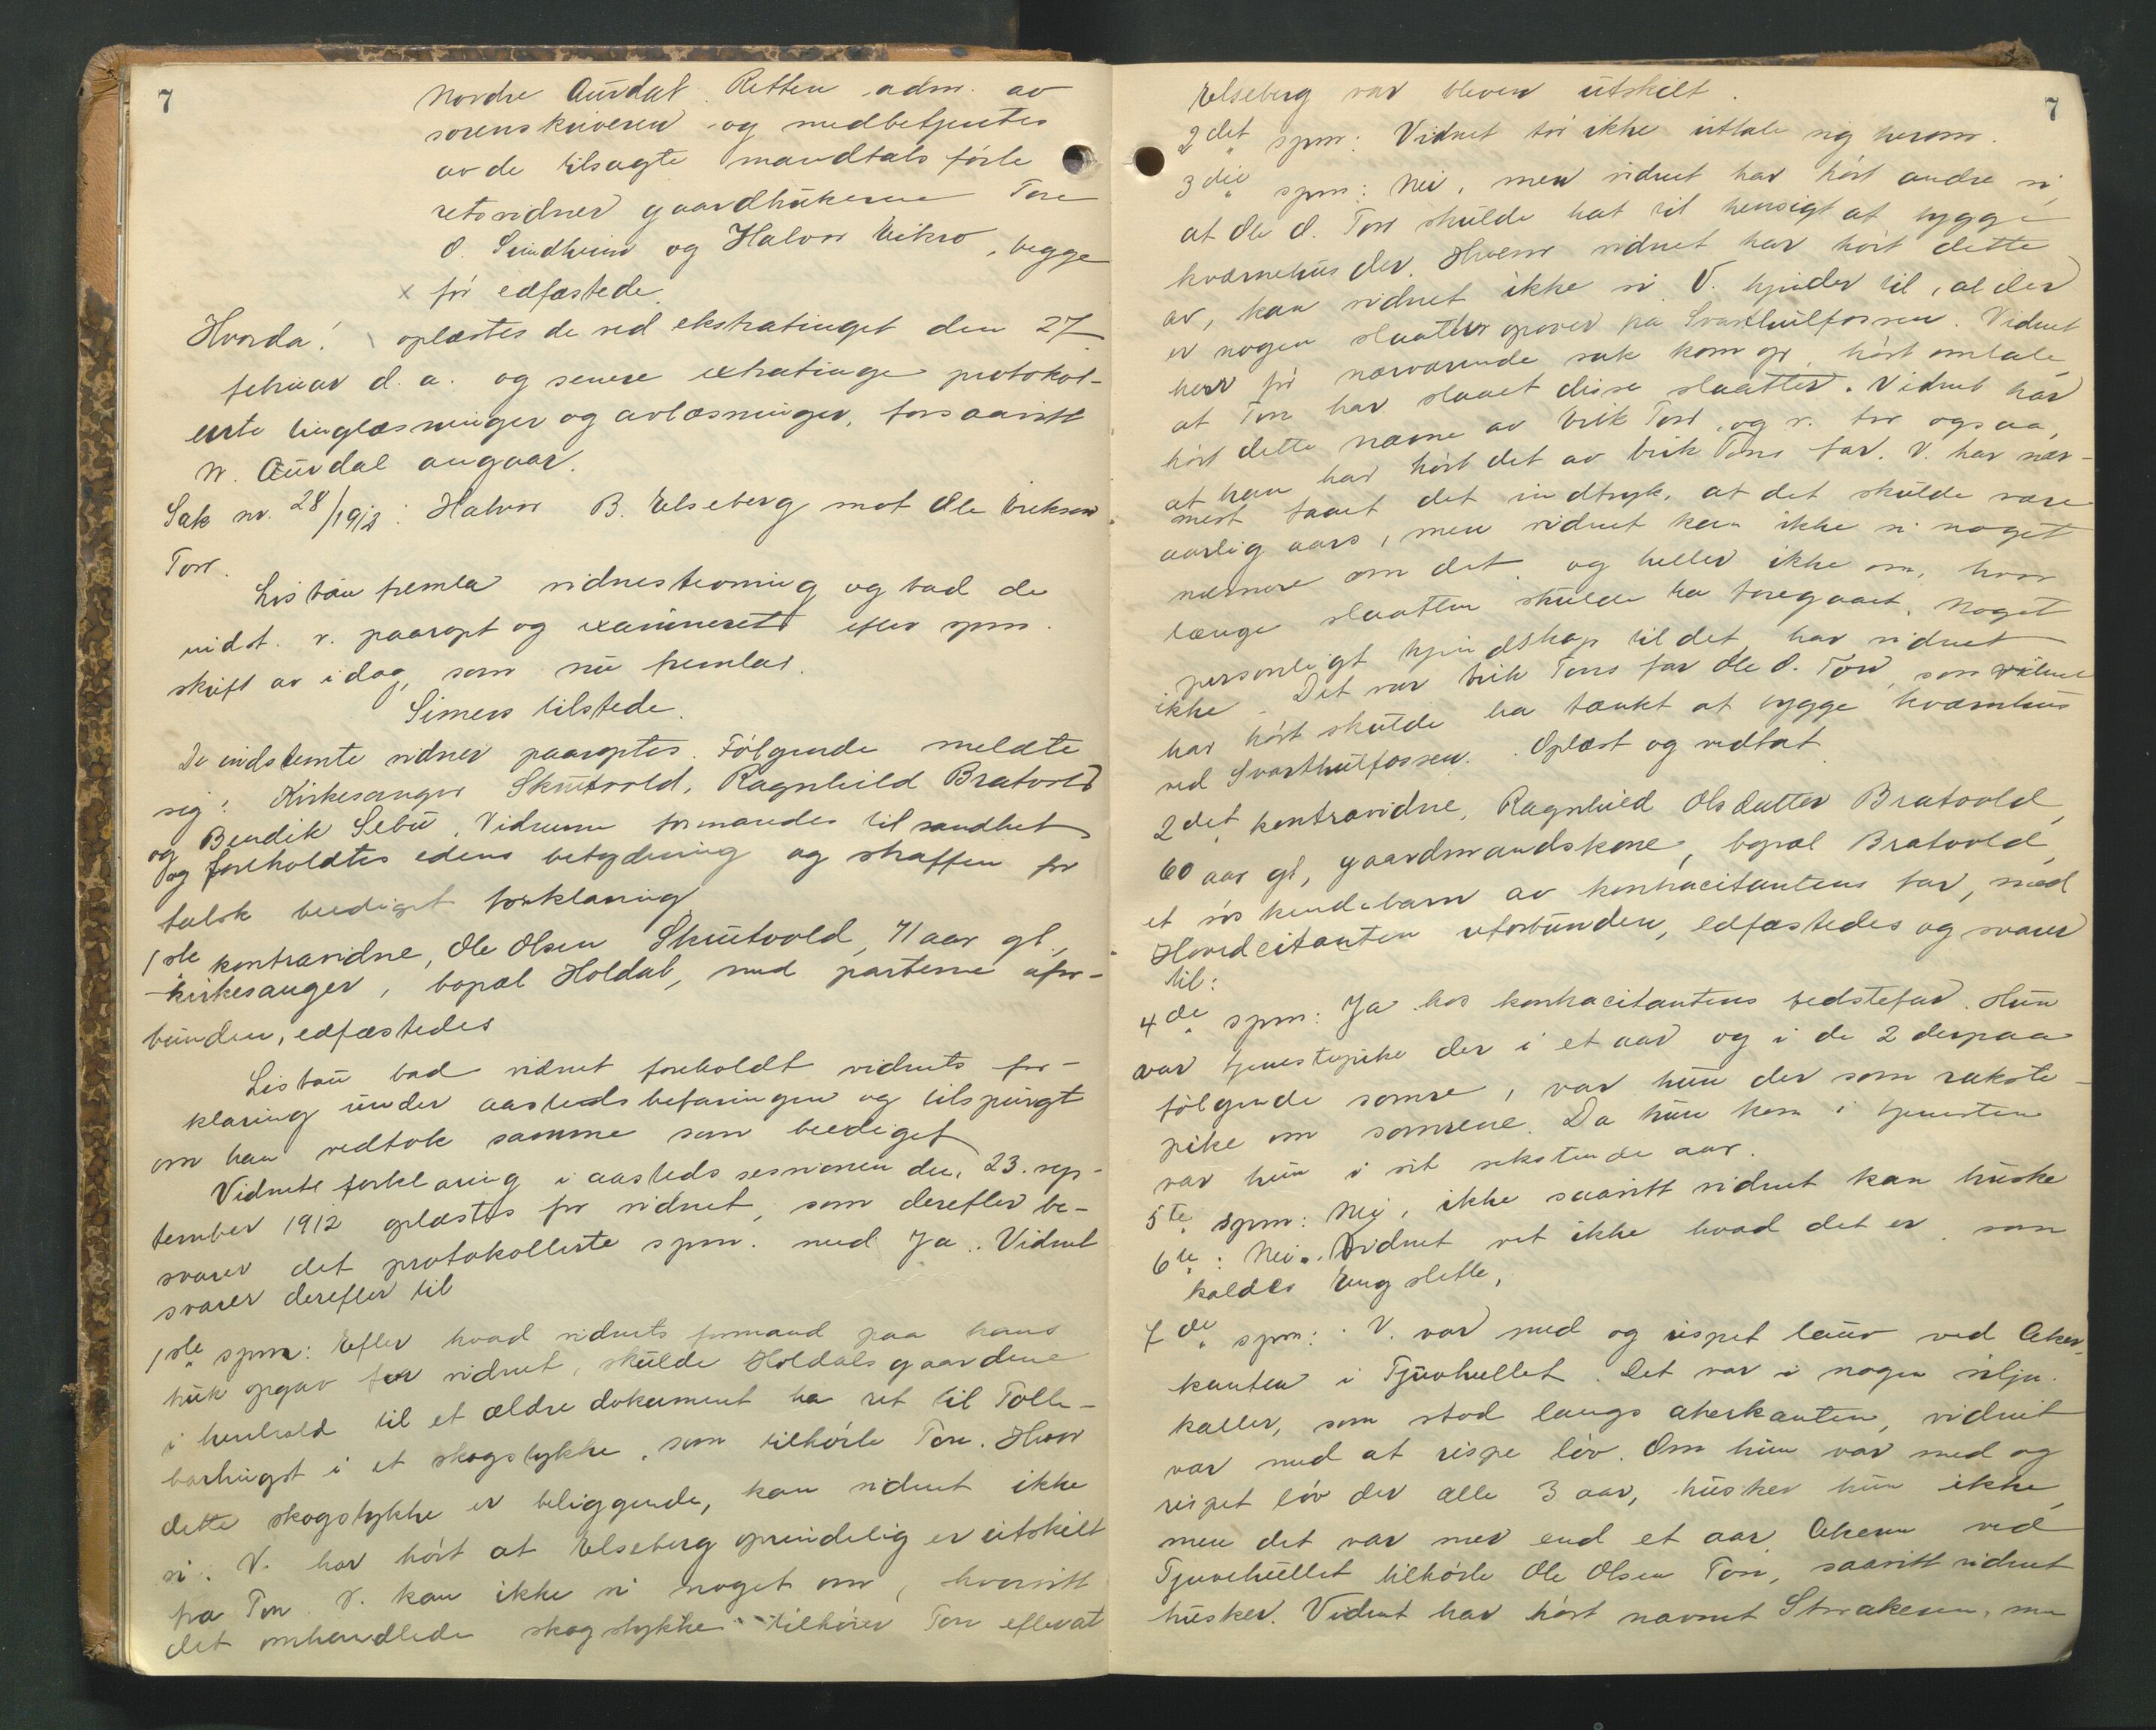 7
Nordre Aurdal. Retten adm. av
sorenskriveren og medbetjentes
av de tilsagte mandtalsførte
retsvidner gaardbrukerne Tore
O. Sundheim og Halvor Vikso, begge
x før edfæstede.
Hvorda! oplæstes de ved ekstratinget den 27.
februar d. a. og senere extratinge protokol-
lerte tinglæsninger og avlæsninger, forsaavitt
N. Aurdal angaar.
Sak nr. 28/1912: Halvor B. Elseberg mot Ole Eriksen
Ton.
Listau fremla vidnestevning og bad de
indst. v. paaropt og examineret efter spm.
skrift av idag, som nu fremlas.
Simers tilstede.
De indstevnte vidner paaroptes. Følgende meldte
sig: Kirkesanger Skrutvold, Ragnhild Bratvold
og Bendik Sebu. Vidnerne formanedes til sandhet
og foreholdtes edens betydning og straffen for
falsk beediget forklaring.
1ste kontravidne, Ole Olsen Skrutvold, 71 aar gl.,
kirkesanger, bopæl Holdal, med parterne ufor-
bunden, edfæstedes
Listau bad vidnet foreholdt vidnets for-
klaring under aastedsbefaringen og tilspurgt
om han vedtok samme som beediget
Vidnets forklaring i aastedssessionen den 23. sep-
tember 1912 oplæstes for vidnet, som derefter be-
svarer det protokollerte spm. med Ja. Vidnet
svarer derefter til
1ste spm: Efter hvad vidnets formand paa hans
bruk opgav for vidnet, skulde Holdalsgaardene
i henhold til et ældre dokument ha ret til Tolle-
barhugst i et skogstykke, som tilhørte Ton. Hvor
dette skogstykke er beliggende, kan vidnet ikke
si. V. har hørt at Elseberg oprindelig er utskilt
fra Ton. V. kan ikke si noget om, hvorvitt
det omhandlede skogstykke tilhører Ton efterat
7
Elseberg var bleven utskilt.
2det spm: Vidnet tør ikke uttale sig herom.
3die spm: Nei, men vidnet har hørt andre si,
at Ole O. Ton skulde hat til hensigt at bygge
kværnehus der. Hvem vidnet har hørt dette
av, kan vidnet ikke si. V. kjender til, at der
er nogen slaatter opover fra Svarthulfossen. Vidnet
har før nærværende sak kom op, hørt omtale
at Ton har slaaet disse slaatter. Vidnet har
hørt dette nævne av Erik Ton, og v. tror ogsaa,
at han har hørt det av Erik Tons far. V. har nær-
mest faaet det indtryk, at det skulde være
aarlig aars, men vidnet kan ikke si noget
nærmere om det og heller ikke om, hvor
længe slaatten skulde ha foregaaet. Noget
personligt kjendskap til det har vidnet
ikke. Det var Erik Tons far Ole O. Ton, som vidnet
har hørt skulde ha tænkt at bygge kværnhus
ved Svarthulfossen. Oplæst og vedtat.
2det kontravidne, Ragnhild Olsdatter Bratvold,
60 aar gl, gaardmandskone, bopæl Bratvold,
et søskendebarn av kontracitantens far, med
Hovedcitanten uforbunden, edfæstedes og svarer
til:
4de spm: Ja hos kontracitantens bedstefar. Hun
var tjenestepike der i et aar og i de 2 derpaa
følgende somre, var hun der som rakste-
pike om somrene. Da hun kom i tjenesten
var hun i sit sekstende aar.
5te spm: Nei, ikke saavitt vidnet kan huske
6te: Nei. Vidnet vet ikke hvad det er som
kaldes Engslette,
7de spm: V. var med og rispet lauv ved Aker-
kanten i Tjuvhullet. Det var i nogen silju-
kaller, som stod langs akerkanten, vidnet
var med at rispe løv. Om hun var med og
rispet løv der alle 3 aar, husker hun ikke,
men det var mer end et aar. Akeren ved
Tjuvehullet tilhørte Ole Olsen Ton, saavitt vidnet
husker. Vidnet har hørt navnet Storakeren, men